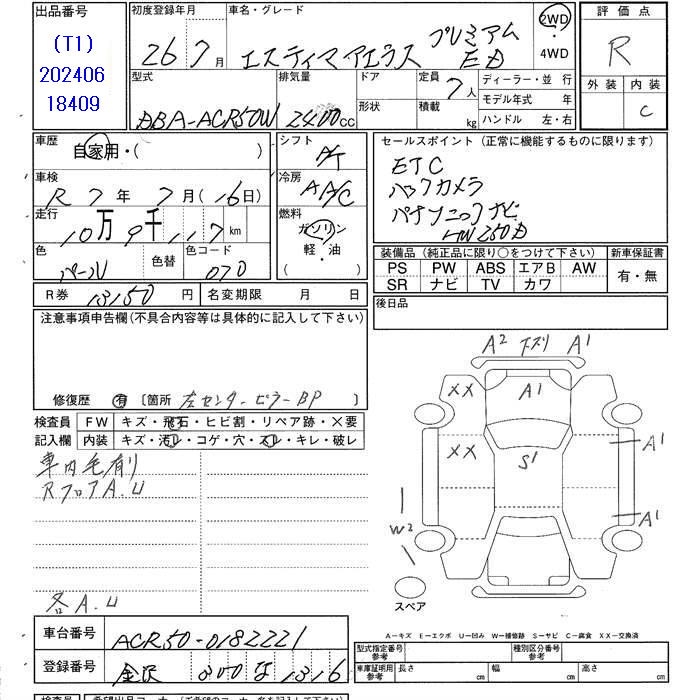 出品番号
(T1)
202406
18409
初度登録年月
26 7 月
車名・グレード
エスティマアエラス プレミアム
ED
2WD
4WD
評価点
R
外装 内装
C
型式
DBA-ACR50W
排気量
2400 cc
ドア
形状
定員
7 人
積載
kg
ディーラー・並 行
モデル年式 年
ハンドル 左・右
車歴
自家用・( )
車検
R 7 年 7 月 (16日)
走行
10万9千117 km
色
パール
色替
色コード
070
シフト
A/T
冷房
AA/C
燃料
ガソリン
軽・油
( )
セールスポイント (正常に機能するものに限ります)
ETC
バックカメラ
パナソニックナビ
装備品 (純正品に限り○をつけて下さい)
PS PW ABS エアB AW
SR ナビ TV カワ
新車保証書
有・無
R券 13150 円
名変期限 月 日
後日品
注意事項申告欄(不具合内容等は具体的に記入して下さい)
修復歴 有 〔箇所 左センターピラーBP 〕
検査員 FW キズ・飛石・ヒビ割・リペア跡・×要
記入欄 内装 キズ・汚レ・コゲ・穴・スレ・キレ・破レ
車内毛有り
RフロアA.U
各A.U
A2 下ズリ A1
XX A1
XX S1 A1
A1
W2
スペア
A-キズ E-エクボ U-凹み W-補修跡 S-サビ C-腐食 XX-交換済
車台番号 ACR50-0182221
登録番号 金沢 300 な 1316
型式指定番号
参考
種別区分番号
参考
車庫証明用
参考
長さ cm 幅 cm 高さ cm
検査員 希望出品コーナー (ご希望のコーナー名を記入下さい)